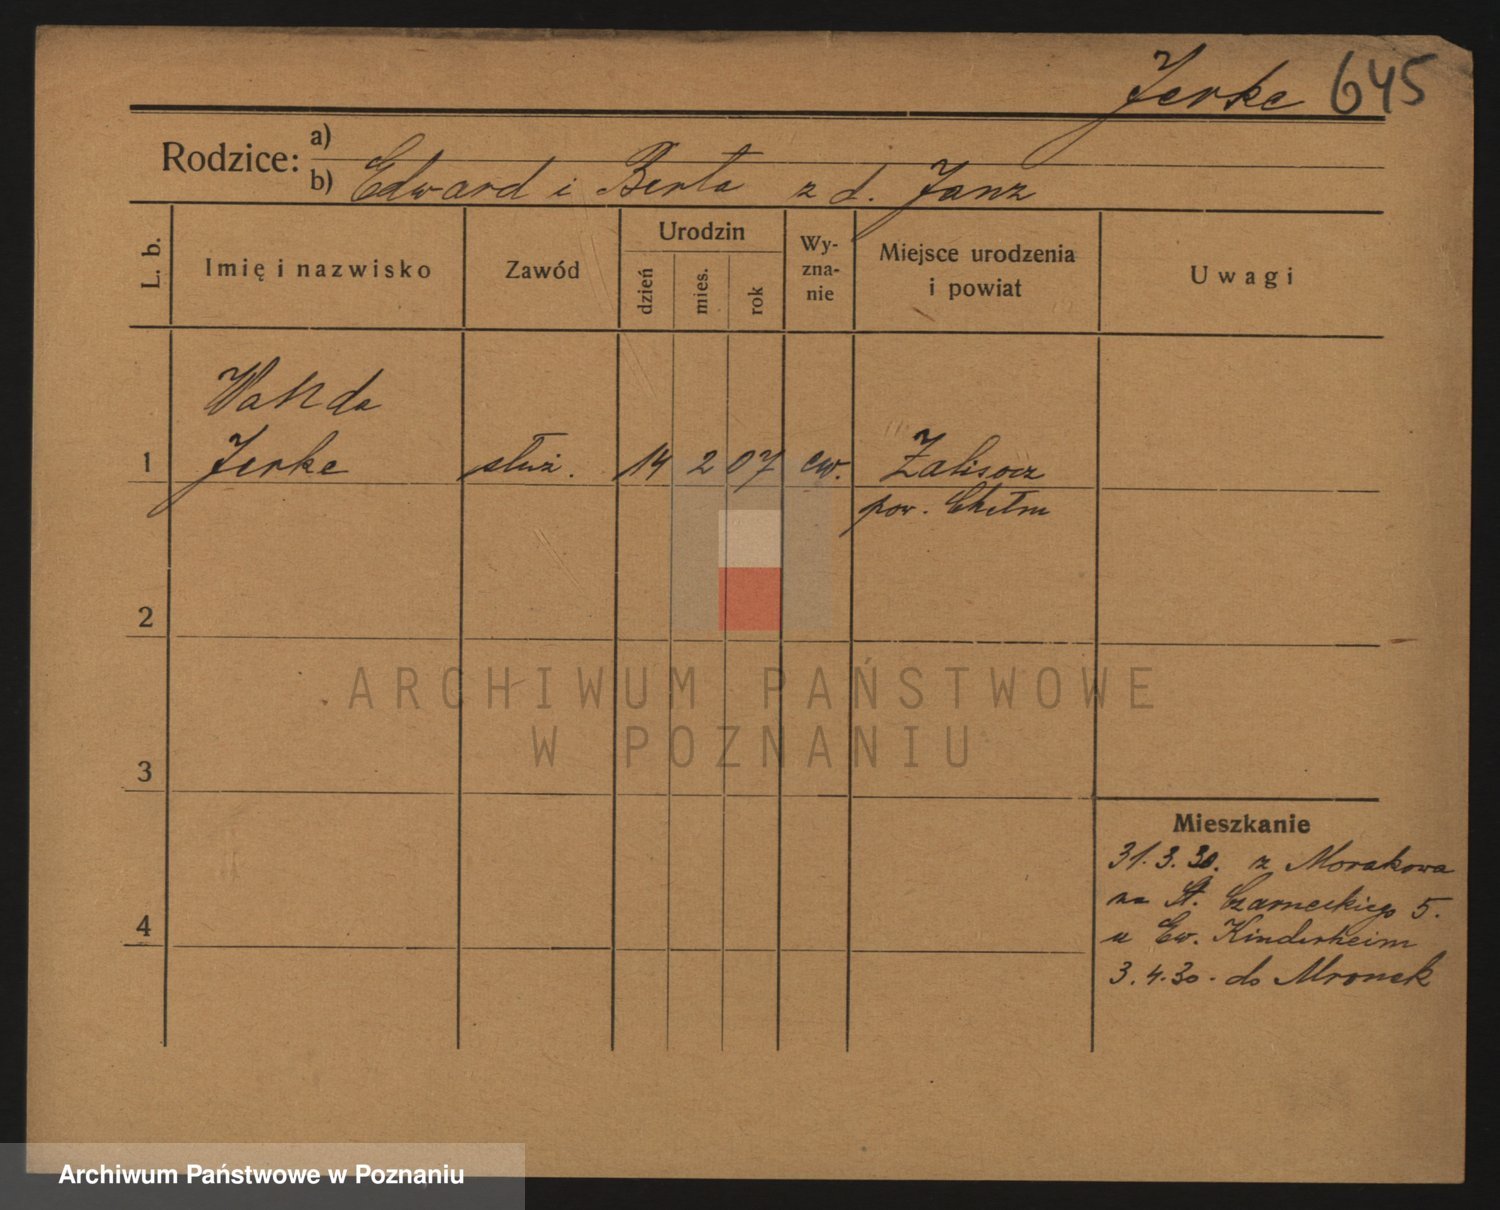 Jerke 645
Rodzice:
a)
b) Edward i Berta z d. Janz
L. b.
Imię i nazwisko
Zawód
Urodzin
dzień
mies.
rok
Wy-
zna-
nie
Miejsce urodzenia
i powiat
Uwagi
Wanda
1 Jerke służ. 14 2 07 ew. Zalisocz
pow. Chełm
2
3
4
Mieszkanie
31.3.30. z Morakowa
na St. Czarneckiego 5.
u Ew. Kinderheim
3.4.30. do Mronek
ARCHIWUM PAŃSTWOWE
W POZNANIU
Archiwum Państwowe w Poznaniu